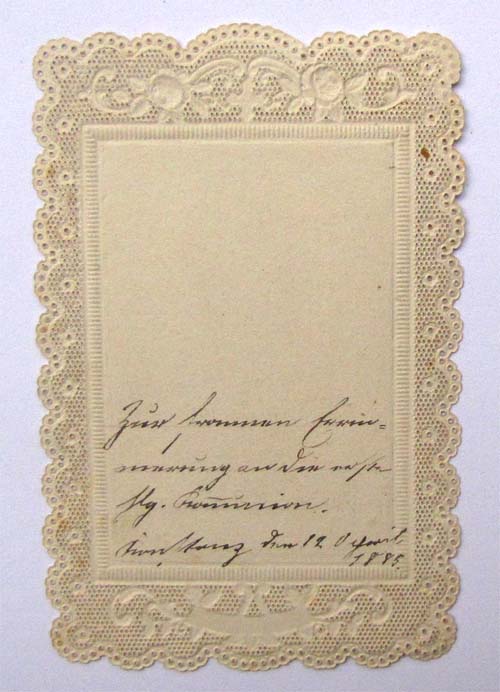 Zur frommen Errin=
nerung an die erste
hlg. Kommunion.
Konstanz den 12. April
1885.